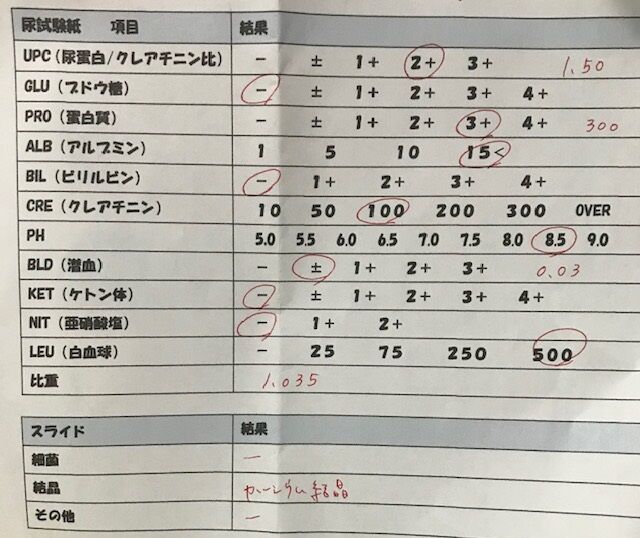 尿試験紙 項目 結果
UPC（尿蛋白/クレアチニン比） − ± 1+ 2+ 3+ 1.50
GLU（ブドウ糖） − ± 1+ 2+ 3+ 4+
PRO（蛋白質） − ± 1+ 2+ 3+ 4+ 300
ALB（アルブミン） 1 5 10 15<
BIL（ビリルビン） − 1+ 2+ 3+ 4+
CRE（クレアチニン） 10 50 100 200 300 OVER
PH 5.0 5.5 6.0 6.5 7.0 7.5 8.0 8.5 9.0
BLD（潜血） − ± 1+ 2+ 3+ 0.03
KET（ケトン体） − ± 1+ 2+ 3+ 4+
NIT（亜硝酸塩） − 1+ 2+
LEU（白血球） − 25 75 250 500
比重 1.035
スライド 結果
細菌 −
結晶 カルシウム結晶
その他 −